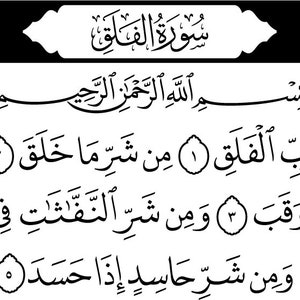 سُورَةُ الفَلَقِ
سْمِ ٱللَّهِ ٱلرَّحْمَٰنِ ٱلرَّحِيمِ
بِّ ٱلْفَلَقِ ١ مِن شَرِّ مَا خَلَقَ
وَقَبَ ٣ وَمِن شَرِّ ٱلنَّفَّٰثَٰتِ فِي
وَمِن شَرِّ حَاسِدٍ إِذَا حَسَدَ ٥